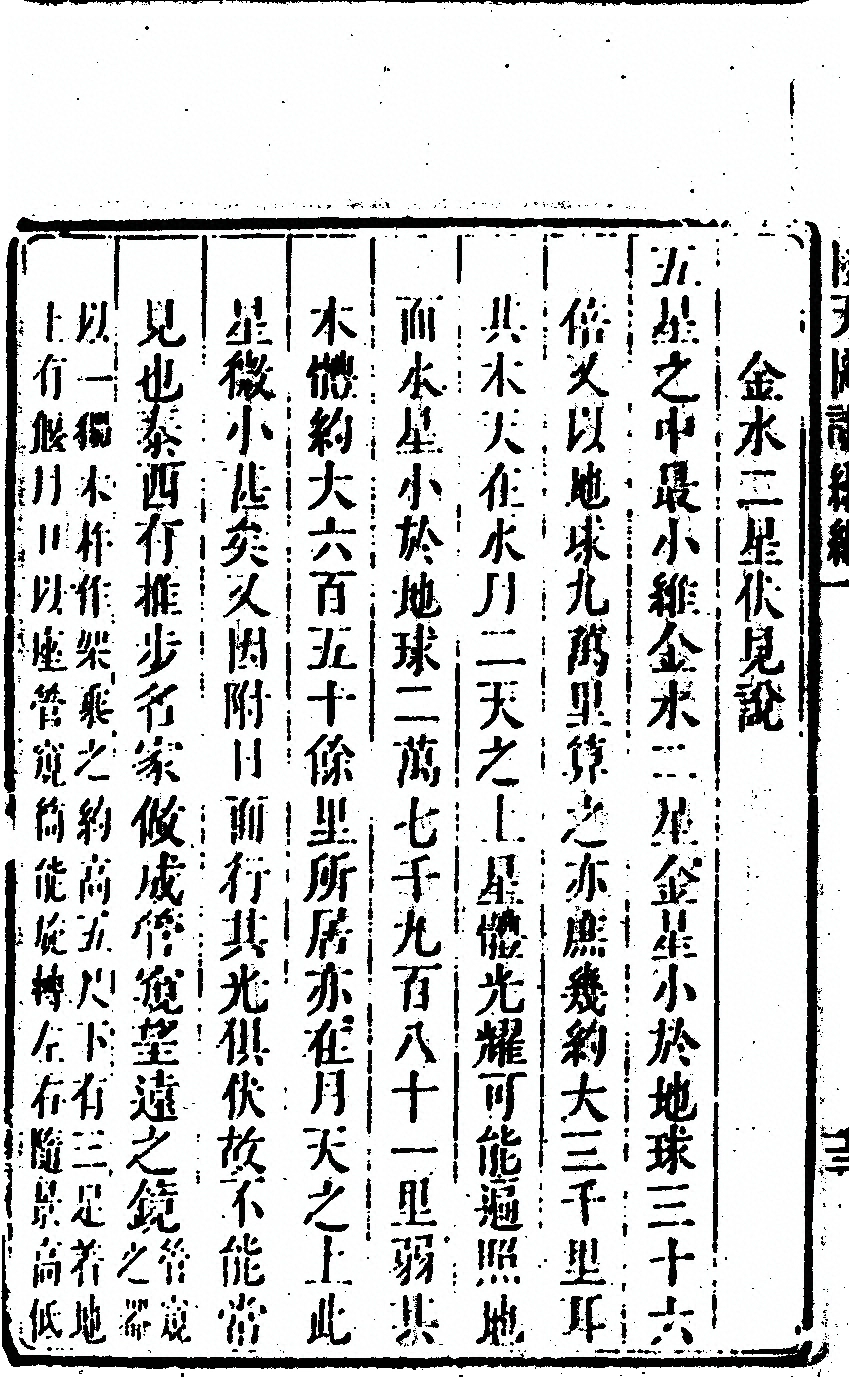 金水二星伏見說
五星之中最小維金水二星金星小於地球三十六
倍又以地球九萬里算之亦應幾約大三千里耳
其本天在水月二天之上星體光耀可能遍照地
而水星小於地球二萬七千九百八十一里弱其
本體約大六百五十餘里所居亦在月天之上此
星微小甚矣又因附日而行其光俱伏故不能常
見也泰西有推步行家做成管窺望遠之鏡管窺
之器
以一獨木作架乘之約高五尺下有三足若地
上有偃月日以座管窺筒能旋轉左右隨景高低